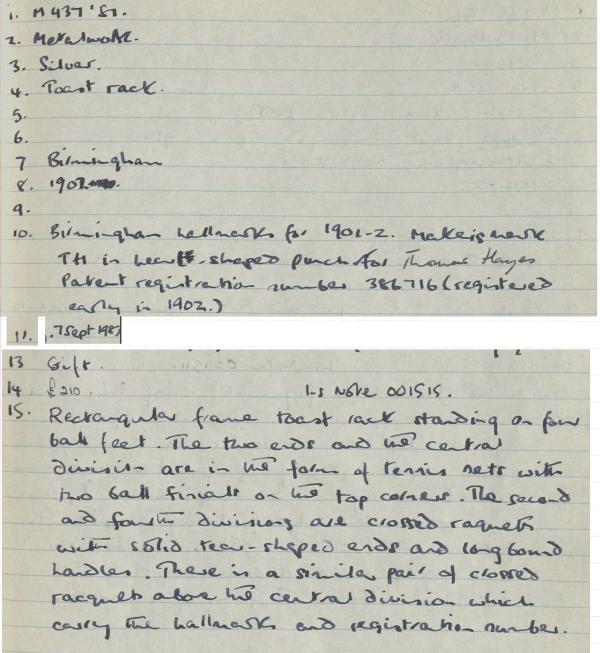 1. M437 '87.
2. Metalwork.
3. Silver.
4. Toast rack.
5.
6.
7 Birmingham
8. 1902
9.
10. Birmingham hallmarks for 1901-2. Maker's mark
TH in heart-shaped punch for Thomas Hayes
Patent registration number 386716 (registered
early in 1902.)
11. 7 Sept 1987
13 Gift.
14 £210. I-S Note 001515.
15. Rectangular frame toast rack standing on four
ball feet. The two ends and the central
division are in the form of tennis nets with
two ball finials on the top corners. The second
and fourth divisions are crossed raquets
with solid tear-shaped ends and long bound
handles. There is a similar pair of crossed
racquets above the central division which
carry the hallmarks and registration number.